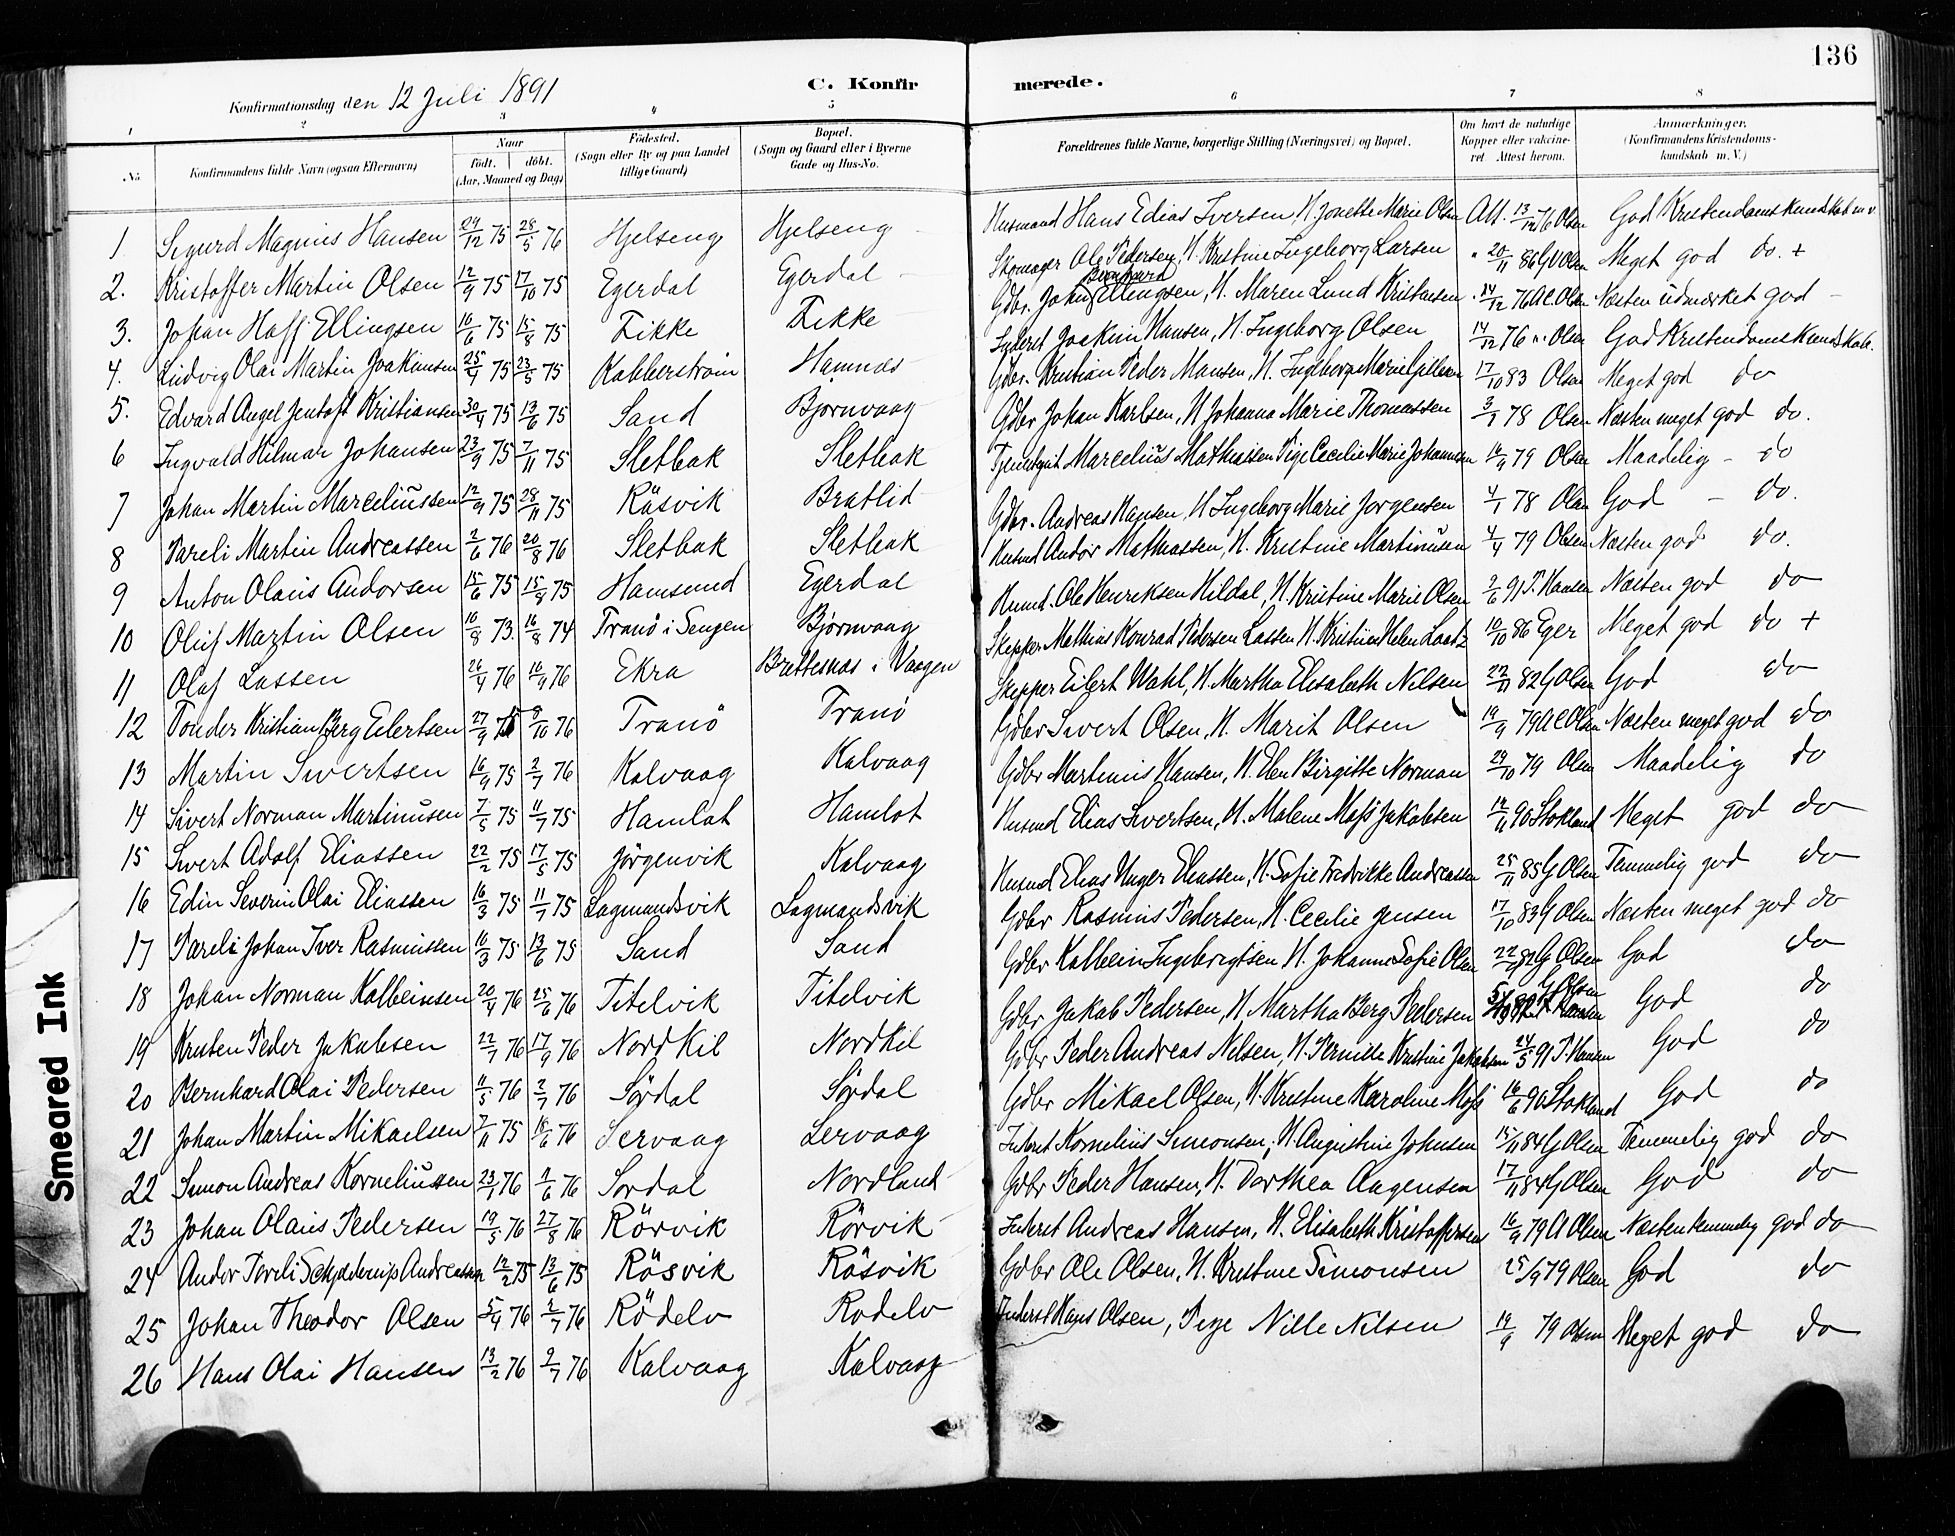 136
C. Konfirmerede.
Konfirmationsdag den 12 Juli 1891
1 2 3 4 5 6 7 8
No. Konfirmandens fulde Navn (ogsaa Efternavn) Naar født. døbt. (Aar, Maaned og Dag) Fødested. (Sogn eller By og paa Landet tillige Gaard) Bopæl. (Sogn og Gaard eller i Byerne Gade og Hus-No. Forældrenes fulde Navne, borgerlige Stilling (Næringsvei) og Bopæl. Om havt de naturlige Kopper eller vakcineret Attest herom. Anmærkninger. (Konfirmandens Kristendomskundskab m. V.)
1 Sigurd Magnus Hansen 24/12 75 28/5 76 Hjelseng Hjelseng Husmand Hans Edias Iversen, H. Jonette Marie Olsen Att. 13/12 76 Olsen God Kristendomskundskab m. v.
2. Kristoffer Martin Olsen 12/9 75 17/10 75 Egerdal Egerdal Skomager Ole Pedersen, H. Kristine Ingeborg Larsen " 20/11 86 G Olsen Meget god do. +
3. Johan Haff Ellingsen 16/6 75 15/8 75 Fikke Fikke Gdbr. Johan Bernhard Ellingsen, H. Maren Lund Kristensen " 14/12 76 A C Olsen Næsten udmærket god
4. Ludvig Olai Martin Joakimsen 25/4 75 23/5 75 Kobberstrøm Hamnæs Inderst Joakim Hansen, H. Ingeborg Olsen 14/12 76 Olsen God Kristendoms Kundskab.
5. Edvard Angel Jentoft Kristiansen 30/4 75 13/6 75 Sand Bjørnvaag Gdbr. Kristian Peder Hansen, H. Ingeborg Marie 17/10 83 Olsen Meget god do
6 Ingvald Hilmar Johansen 23/9 75 7/11 75 Sletbak Sletbak Gdbr Johan Karlsen, H Johanna Marie Thomassen 3/7 78 Olsen Næsten meget god do.
7 Johan Martin Marceliussen 12/9 75 28/11 75 Råsvik Bratlid Marcelius Mathiassen Pige Cecilie Marie Johannesen 16/9 79 Olsen Maadelig - do
8 Pareli Martin Andreassen 2/6 76 20/8 76 Sletbak Sletbak Gdbr. Andreas Hansen, H Ingeborg Marie Jørgensen 4/1 78 Olsen God - do.
9 Anton Olaus Andorsen 15/6 75 15/8 75 Hamsund Egerdal Husmd Andor Mathiassen, H. Kristine Martinusen 4/4 79 Olsen Næsten god do.
10 Oluf Martin Olsen 10/8 73. 16/8 74 Tranö i Senjen Bjørnvaag Husmd. Ole Henriksen Hildal, H. Kristine Marie Olsen 2/6 91 P. Hansen Næsten god do
11 Olaf Lassen 26/4 76 10/9 76 Ekra Brattesnæs i Vaagen Skipper Mathias Konrad Pedersen Lassen H. Kristine Helen Laatz 10/10 86 Eger Meget god do +
12 Tonder Kristian Berg Eilertsen 27/9 75 8/10 76 Tranö Tranö Skipper Eilert Wahl, H. Martha Elisabeth Nilsen 22/11 82 G Olsen God do
13 Martin Sivertsen 16/9 75 2/7 76 Kalvaag Kalvaag Gdbr Sivert Olsen, H. Marit Olsen 19/9 79 A C Olsen Næsten meget god do
14 Sivert Norman Martinusen 7/5 75 11/7 75 Hamlot Hamlot Gdbr Martinus Hansen, H. Elen Birgitte Norman 29/10 79 Olsen Maadelig do
15 Sivert Adolf Eliassen 22/2 75 17/5 75 Jørgenvik Kalvaag Husmd Elias Sivertsen, H. Malene Moss Jakobsen 14/11 90 Stokland Meget god do
16 Edin Severin Olai Eliassen 16/3 75 11/7 75 Lagmandsvik Lagmandsvik Husmd Elias Unger Eliassen, H. Sofie Fredrikke Andreassen 25/11 85 G Olsen Temmelig god do
17 Pareli Johan Iver Rasmussen 10/3 75 13/6 75 Sand Sand Gdbr Rasmus Pedersen, H. Cecilie Jensen 17/10 83 G Olsen Næsten meget god do
18 Johan Norman Kolbeinsen 20/4 76 25/6 76 Titelvik Titelvik Gdbr Kolbein Ingebrigtsen H. Johanne Sofie Olsen G Olsen God do
19 Kristen Peder Jakobsen 22/7 76 17/9 76 Nordkil Nordkil Gdbr Jakob Pedersen, H Martha Berg Pedersen G Olsen God do
20 Bernhard Olai Pedersen 11/5 76 2/7 76 Sørdal Sørdal Gdbr Peder Andreas Nilsen, H. Pernille Kristine Jakobsen 24/5 91 P. Hansen God do
21 Johan Martin Mikaelsen 7/11 75 18/6 76 Lervaag Lervaag Gdbr Mikael Olsen, H. Kristine Karoline Moss 16/6 90 Stokland God do
22 Simon Andreas Korneliussen 23/1 76 2/6 76 Sørdal Nordland Inderst Kornelius Simonsen, H. Augustine Johnsen 15/11 84 G Olsen Temmelig god do
23 Johan Olaus Pedersen 19/5 76 27/8 76 Rörvik Rörvik Gdbr Peder Hansen, H. Dorthea Aagensen 17/11 84 G Olsen God do
24 Andor Pareli Schjelderup Andreassen 12/2 75 13/6 75 Rösvik Røsvik Inderst Andreas Hansen, H. Elisabeth Kristoffersen 16/9 79 A Olsen Næsten temmelig god do
25 Johan Theodor Olsen 5/4 76 2/7 76 Rödelv Rødelv Gdbr Ole Olsen, H. Kristine Simonsen 25/9 79 Olsen God do
26 Hans Olai Hansen 13/2 76 2/7 76 Kalvaag Kalvaag Inderst Hans Olsen, Pige Nille Nilsen 19/9 79 Olsen Meget god do
Smeared Ink